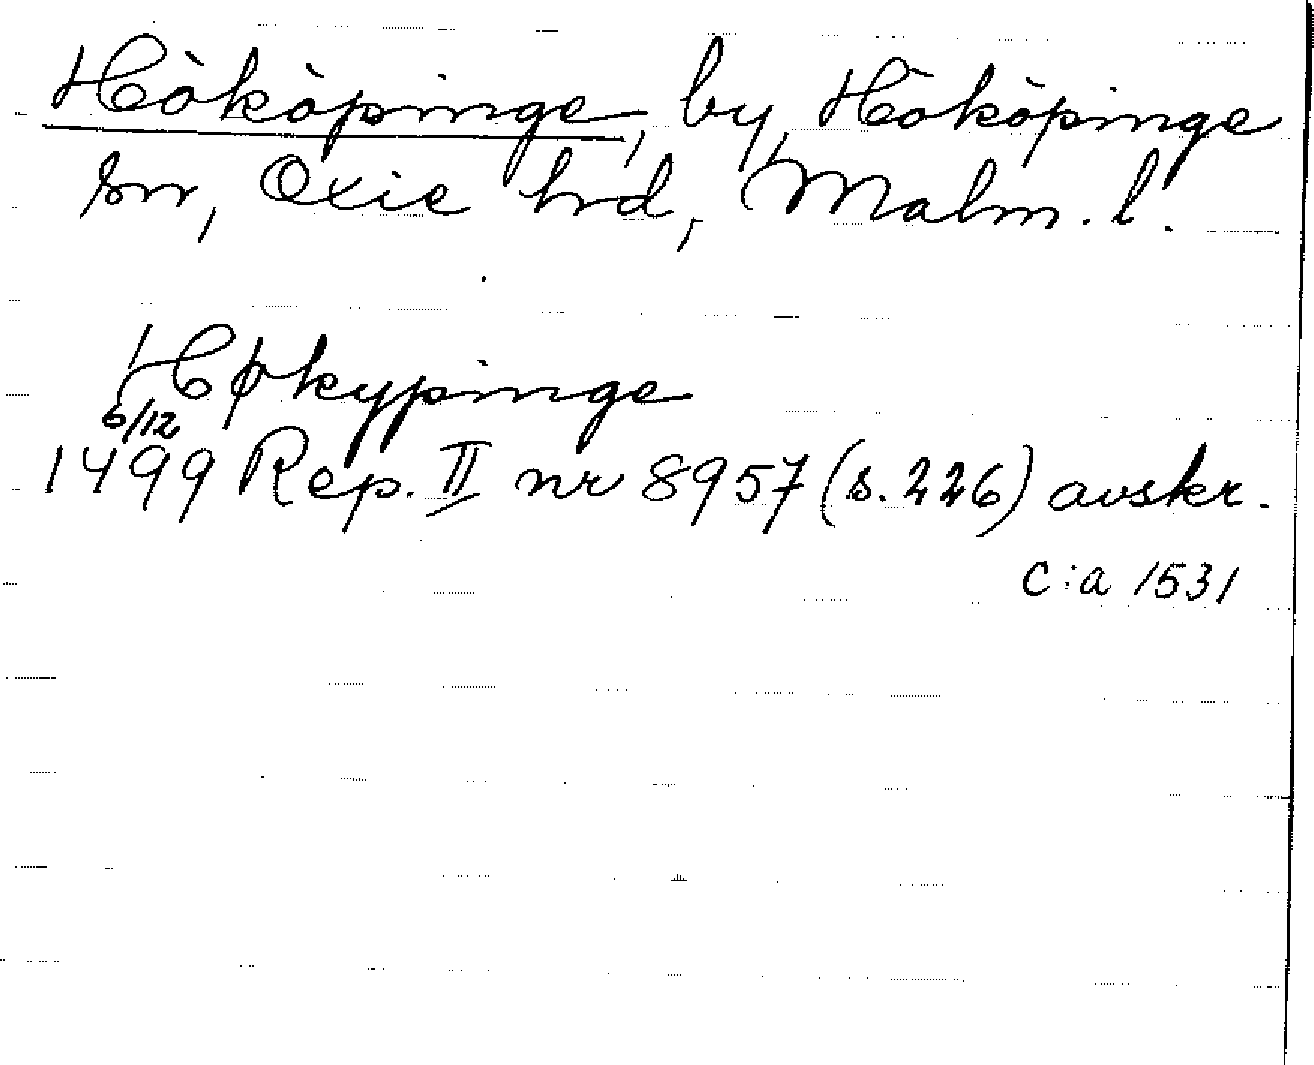 Hököpinge, by, Hököpinge
sn, Oxie hrd, Malm. l.
Høkypinge
6/12
1499 Rep. II nr 8957 (s. 226) avskr.
c:a 1531